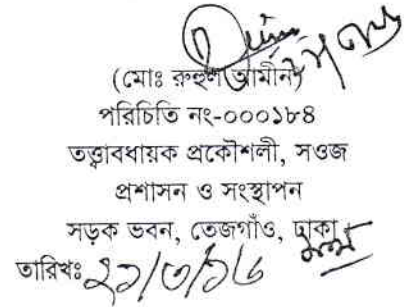 (মোঃ রুহুল আমীন)
পরিচিতি নং-০০০১৮৪
তত্ত্বাবধায়ক প্রকৌশলী, সওজ
প্রশাসন ও সংস্থাপন
সড়ক ভবন, তেজগাঁও, ঢাকা
তারিখঃ